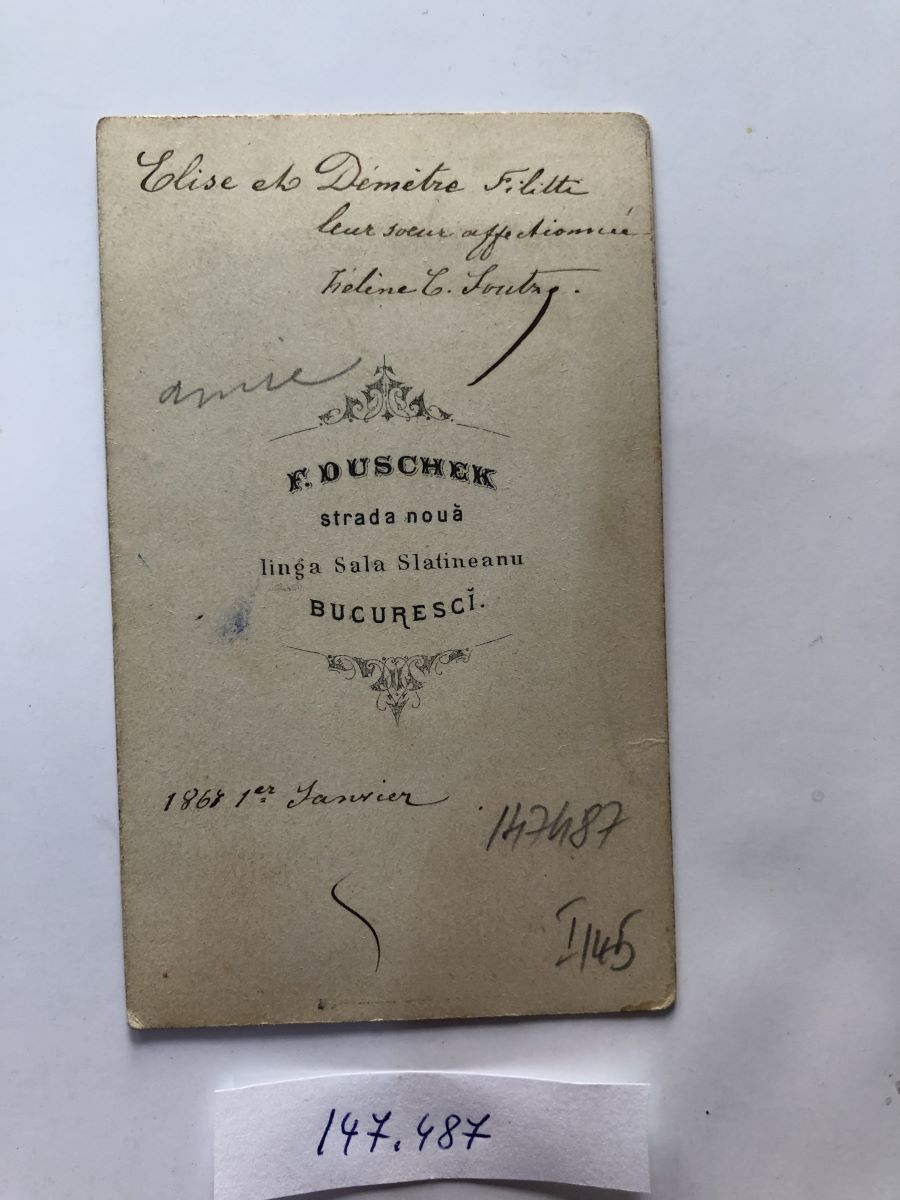 Elise et Démètre Filitti
leur soeur affectionnée
Hélène C. Soutzo.
amie
F. DUSCHEK
strada nouă
linga Sala Slatineanu
BUCURESCĬ.
1868 1er Janvier
147487
I/45
147.487